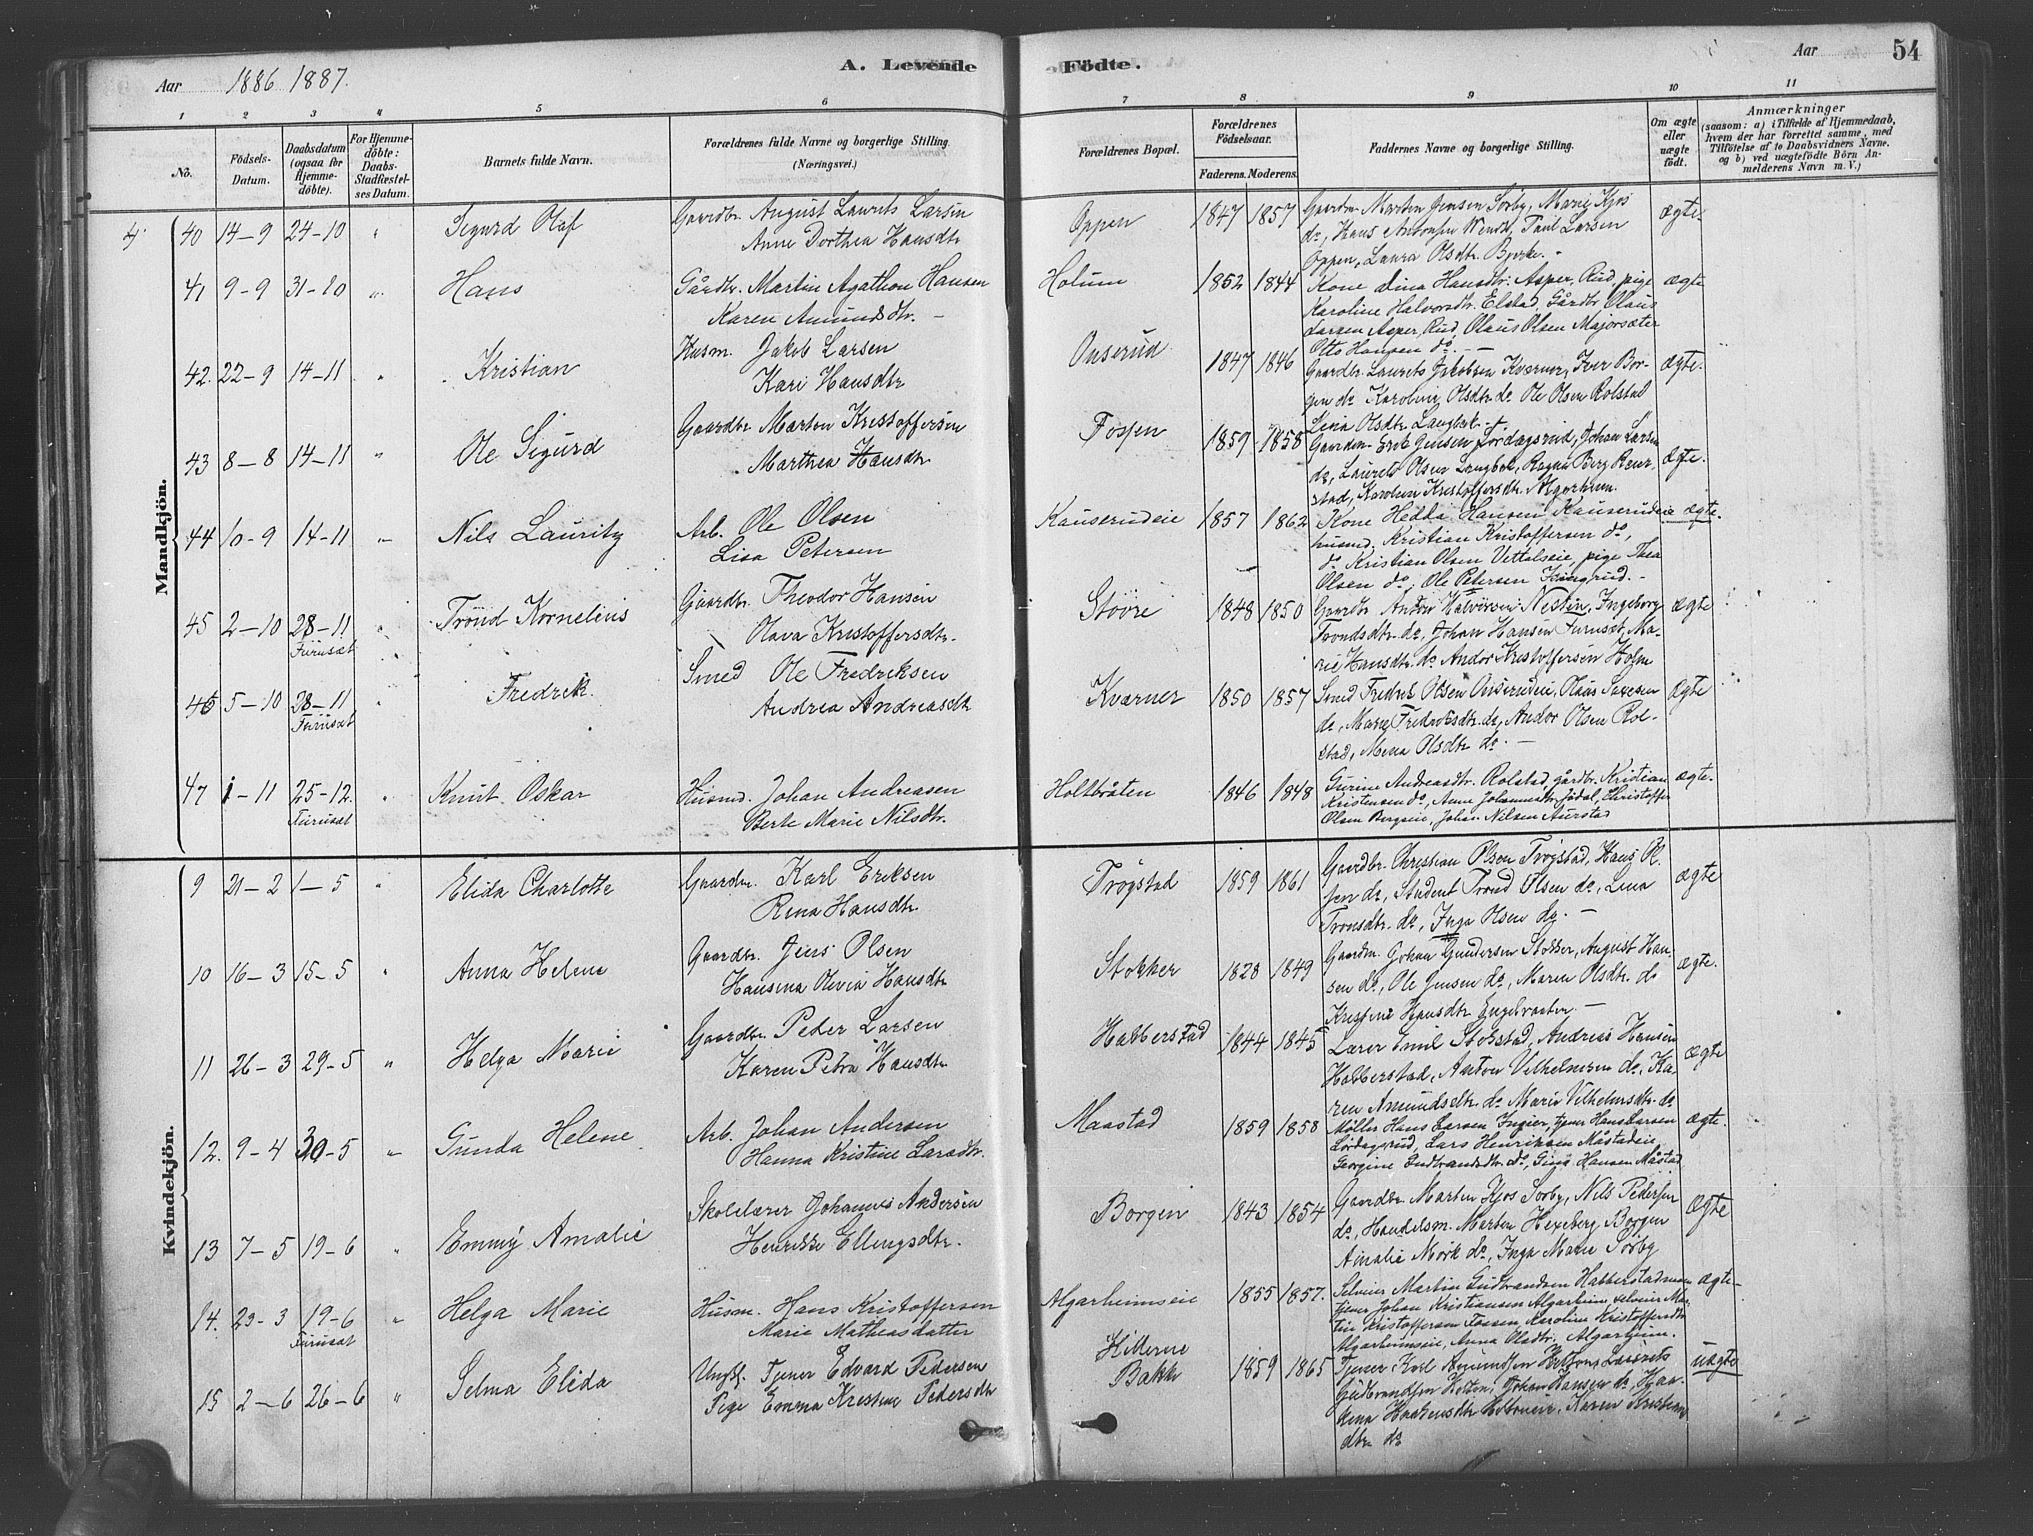 Aar 1886 1887.
A. Levende Födte.
Aar 54
1 2 3 4 5 6 7 8 9 10 11
No. Födsels-Datum. Daabsdatum (ogsaa for Hjemmedöbte). For Hjemmedöbte: Daabs-Stadfæstelses Datum. Barnets fulde Navn. Forældrenes fulde Navne og borgerlige Stilling. (Næringsvei.) Forældrenes Bopæl. Forældrenes Födselsaar. Faderens. Moderens. Faddernes Navne og borgerlige Stilling. Om ægte eller uægte födt. Anmærkninger (saasom: a) i Tilfælde af Hjemmedaab, hvem der har forrettet samme, med Tilföielse af to Daabsvidners Navne. og b) ved uægtefödte Börn Anmelderens Navn m. V.)
Mandkjön.
40 14-9 24-10 " Sigurd Olaf Gaardbr. August Laurits Larsen Oppen 1847 1857 Gaardm. Marten Jensen Sørby, Marie Kjos ægte.
Anne Dorthea Hansdtr do, Hans Antonsen Wendt, Paul Larsen
Oppen, Laura Olsdtr. Bjerke.
41 9-9 31-10 " Hans Gårdbr. Martin Agathon Hansen Holum 1852 1844 Kone Dina Hansdtr. Asper, Rud, pige ægte
Karen Amundsdtr. Karoline Halvorsdtr. Elstad, Gårdbr. Olaus
Larsen Asper, Rud, Olaus Olsen Majorsæter
Otto Hansen do.
42. 22-9 14-11 " Kristian Husm. Jakob Larsen Onserud 1847 1846 Gaardbr. Laurets Jakobsen Kverner, Iver Bor- ægte.
Kari Hansdtr gen do Karoline Olsdtr. do Ole Olsen Rolstad
Lina Olsdtr. Langbak
43 8-8 14-11 " Ole Sigurd Gaardbr. Marten Kristoffersen Fossen 1859 1858 Gaardm. Erik Jensen Lørdagsrud, Johan Larsen ægte.
Marthea Hansdtr do, Laurets Olsen Langbak, Ragna Berg Rener-
stad, Karoline Kristoffersdtr. Algarheim.
44 10-9 14-11 " Nils Lauritz Arb. Ole Olsen Kauserudeie 1857 1862 Kone Hedda Hansen Kauserudeie ægte.
Lisa Petersen husmd. Kristian Kristoffersen do,
do Kristian Olsen Vettalseie, pige Thea
Olsen do, Ole Petersen Isingrud.
45 2-10 28-11 " Trönd Kornelius Gaardbr. Theodor Hansen Stövre 1848 1850 Gaardbr. Anton Halvorsen Nestin, Ingeborg ægte
Furuset Olava Kristoffersdtr. Trondsdtr. do, Johan Hansen Furuset, Ma-
rie Hansdtr. do Andor Kristoffersen Holm
46 5-10 28-11 " Fredrik. Smed Ole Fredriksen Kværner 1850 1857 Smed Fredrik Olsen Onserudeie, Olaus Larsen ægte
Furuset Andrea Andreasdtr do, Marie Fredriksdtr. do, Andor Olsen Rol-
stad, Mena Olsdtr do.
47 1-11 25-12. " Knut Oskar Husmd. Johan Andreasen Holtbråten 1846 1848 Gurine Andreasdtr. Rolstad, gårdbr. Kristian ægte.
Furuset Berte Marie Nilsdtr. Kristensen do, Anne Johannesdtr. Jödal, Christoffer
Olsen Bergseie, Johan Nilsen Aurstad
Kvindekjön.
9 21-2 1-5 " Elida Charlotte Gaardbr. Karl Eriksen Trögstad 1859 1861 Gaardbr. Christian Olsen Trögstad, Hans Ol- ægte
Rina Hansdtr. sen do, Student Trönd Olsen do, Lina
Tronsdtr. do, Inga Olsen do.
10 16-3 15-5 " Anna Helene Gaardbr. Jens Olsen Stokker 1828 1849 Gaardm. Johan Gundersen Stokker, August Han- ægte.
Hansina Olivia Hansdtr sen do, Ole Jensen do, Maren Olsdtr. do
Kristine Hansdtr.
11 26-3 29-5 " Helga Marie Gaardbr. Peder Larsen Habberstad 1844 1845 Lærer Emil Stokstad, Andreas Hansen ægte
Karen Petra Hansdtr Habberstad, Anton Vilhelmsen do, Ka-
ren Amundsdtr. do Marie Vilhelmsdtr. do
12. 9-4 30-5 " Gunda Helene Arb. Johan Andersen Maastad 1859 1858 Møller Hans Larsen Ingier, tjener Hans Larsen ægte.
Hanna Kristine Larsdtr. Lördagsrud, Lars Henriksen Måstadeie,
Georgine Gudbrandsdtr do, Gina Hansen Måstad
13 7-5 19-6 " Emmy Amalie Skolelærer Johannes Andersen Borgen 1843 1854 Gaardbr. Marten Kjos Sørby, Nils Pedersen ægte
Henrikke Ellingsdtr. do, Handelsm. Morten Hexeberg Borgen
Amalie Mørk do, Inga Marie Sørby
14. 23-3 19-6 " Helga Marie Husm. Hans Kristoffersen Algarheimseie 1855 1857. Selveier Martin Gudbrandsen Habberstadmoen ægte
Furuset Marie Mathiasdatter tjener Johan Kristiansen Algarheim, selveier Mar-
tin Kristoffersen Fossen, Karoline Kristoffersdtr
Algarheimseie, Anna Olsdtr. Algarheim.
15 2-6 26-6 " Selma Elida Ungk. Tjener Edvard Pedersen 1859 1865 Tjener Karl Amundsen uægte
Pige Emma Kristine Pedersdtr Bakke Gudbrandsen Johan Hansen do,
Karen Kristians
dtr. do